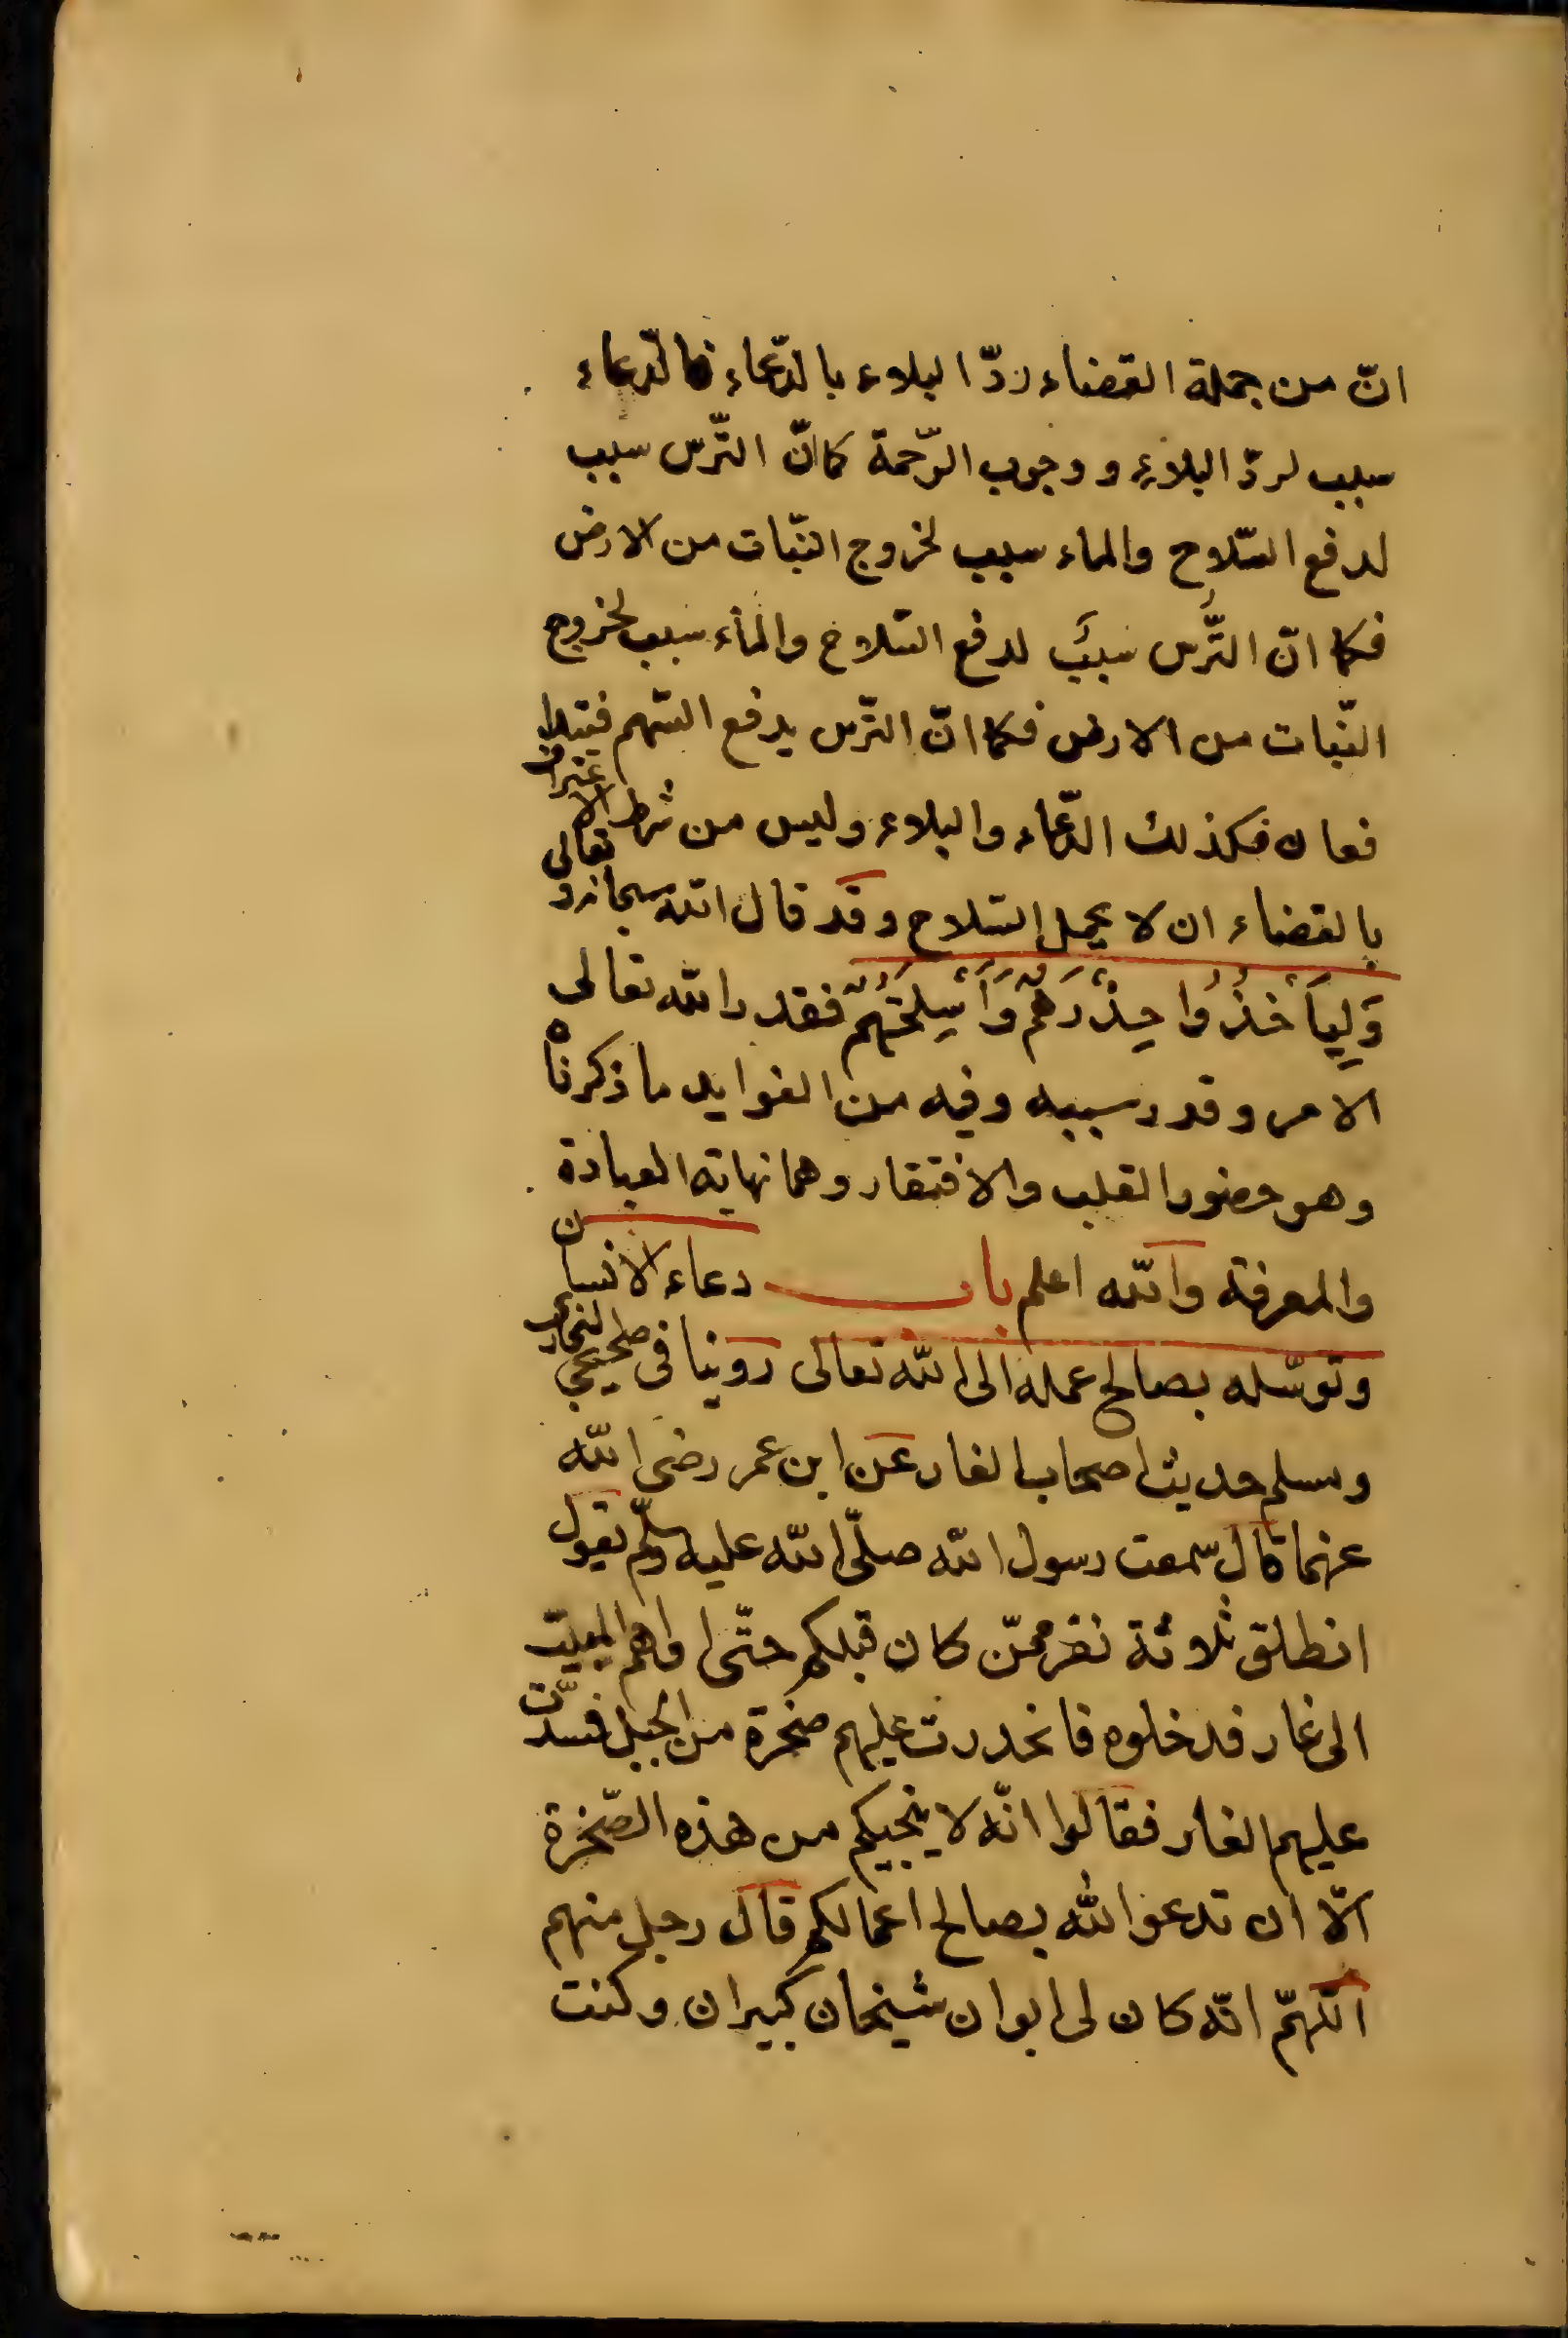 انّ من جملة القضاء ردّ البلاء بالدّعاء فالدّعاء
سبب لردّ البلاءِ ووجوب الرّحمة كما انّ التّرس سبب
لدفع السّلاح والماء سبب لخروج النّبات من الارض
فكما انّ التُّرس سَبَبَ لدفع السّلاح والماء سبب لخروج
النّبات من الارض فكما انّ التّرس يدفع السّهم فيتدا
فعان فكذلك الدّعاء والبلاء وليس من شرط الاعتراف
بالقضاء ان لا يحمل السّلاح وقد قال الله سبحانه و تعالى
وَلِيَأْخُذُوا حِذْرَهُمْ وَأَسْلِحَتَهُمْ فقدر الله تعالى
الامر وقدر سببه وفيه من الفوايد ما ذكرناه
وهو حضور القلب والافتقار وهما نهاية العبادة
والمعرفة والله اعلم باب دعاء الانسان
وتوسّله بصالح عمله الى الله تعالى روينا فى صحيحي البخارى
ومسلم حديث اصحاب الغار عن ابن عمر رضى الله
عنهما قال سمعت رسول الله صلّى الله عليه وسلّم يقول
انطلق ثلاثة نفر ممّن كان قبلكم حتّى اواهم المبيت
الى غار فدخلوه فانحدرت عليهم صخرة من الجبل فسدّت
عليهم الغار فقالوا انّه لا ينجيكم من هذه الصّخرة
الّا ان تدعوا الله بصالح اعمالكم قال رجل منهم
اللّهمّ انّه كان لى ابوان شيخان كبيران وكنت